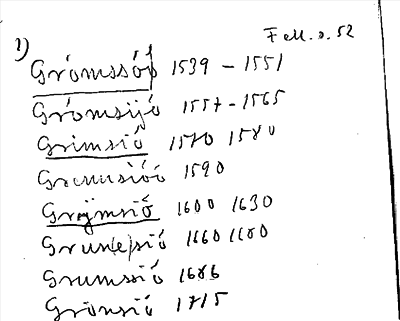 Fell. s. 52
1)
Grómssóþ 1539 – 1551
Grómsijó 1557 – 1565
Grimsió 1570 1580
Gremusióó 1590
Grÿmsió 1600 1630
Grun(e)sió 1660 1680
Grumssió 1686
Grönsió 1715